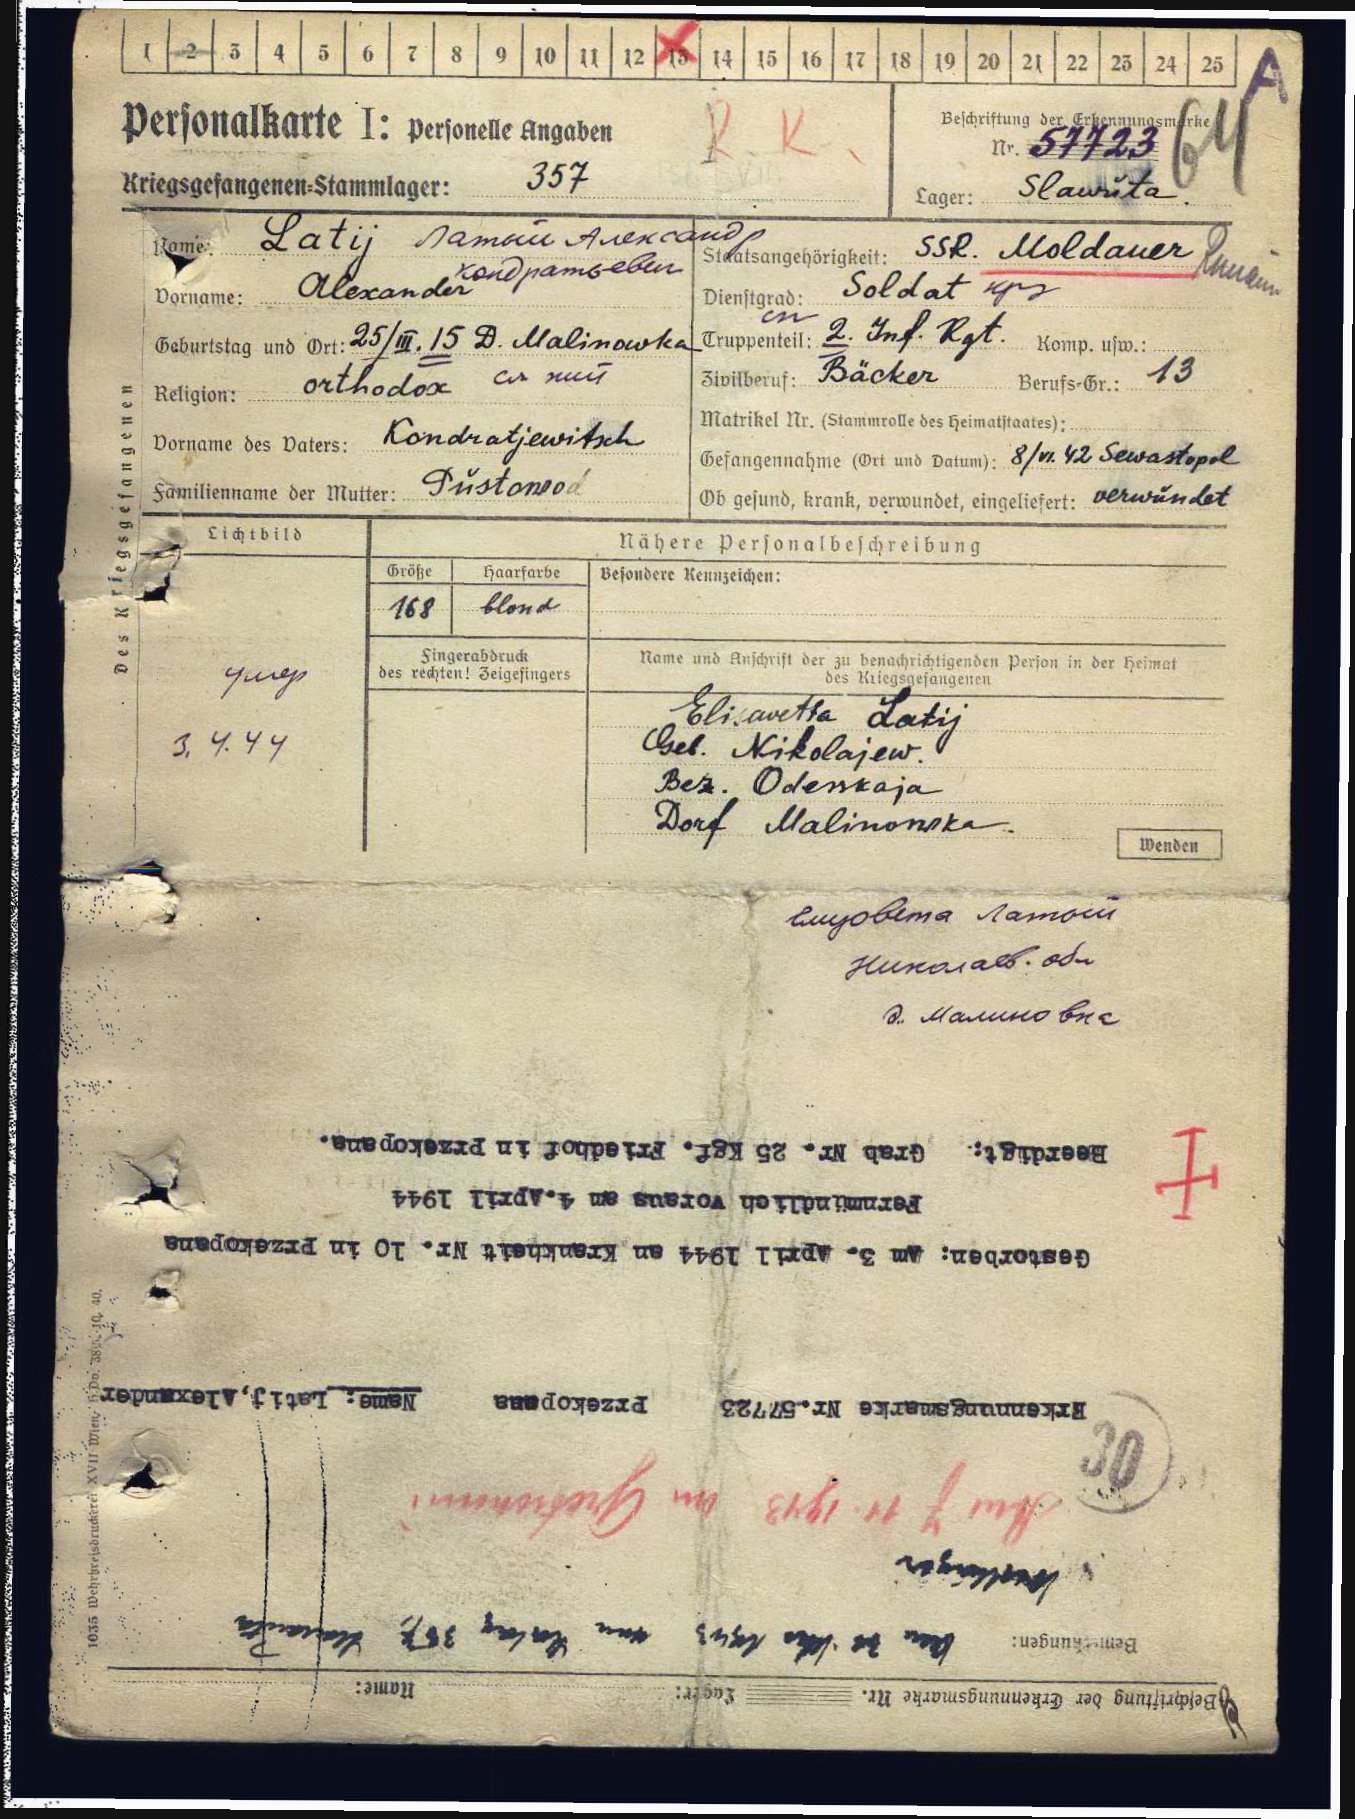 1 2 3 4 5 6 7 8 9 10 11 12 13 14 15 16 17 18 19 20 21 22 23 24 25
A
Personalkarte I: Personelle Angaben
R. K.
Kriegsgefangenen=Stammlager: 357
Beschriftung der Erkennungsmarke
Nr. 57723
64
Lager: Slawŭta.
Des Kriegsgefangenen
Name: Latij Латый Александр
Кондратьевич
Vorname: Alexander
Geburtstag und Ort: 25/III. 15 D. Malinowka
Religion: orthodox
Vorname des Vaters: Kondratjewitsch
Familienname der Mutter: Pŭstowod
Staatsangehörigkeit: SSR. Moldauer
Dienstgrad: Soldat
Truppenteil: 2. Inf. Rgt. Komp. usw.:
Zivilberuf: Bäcker Berufs=Gr.: 13
Matrikel Nr. (Stammrolle des Heimatstaates):
Gefangennahme (Ort und Datum): 8/VI. 42 Sewastopol
Ob gesund, krank, verwundet, eingeliefert: verwŭndet
Lichtbild
Nähere Personalbeschreibung
Größe Haarfarbe Besondere Kennzeichen:
168 blond
Fingerabdruck
des rechten! Zeigefingers
Name und Anschrift der zu benachrichtigenden Person in der Heimat
des Kriegsgefangenen
умер
3. 4. 44
Elisavetta Latij
Geb. Nikolajew.
Bez. Odesskaja
Dorf Malinowska.
Wenden
Елизовета Латый
Николаев. обл
д. Малиновка
Beerdigt: Grab Nr. 25 Kgf. Friedhof in Przekopana.
Fernmündlich voraus am 4.April 1944
Gestorben: Am 3. April 1944 an Krankheit Nr. 10 in Przekopana
Erkennungsmarke Nr.57723 Przekopana Name: Latij,Alexander
30
11. 1943
Bemerkungen: 1943 Stalag 357, Slawuta
Beschriftung der Erkennungsmarke Nr. Lager: Name:
1035 Wehrkreisdruckerei XVII Wien.